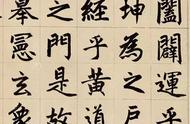 闔闢運乎
坤為之戶
經乎黃道
之門是故
摹憲玄象